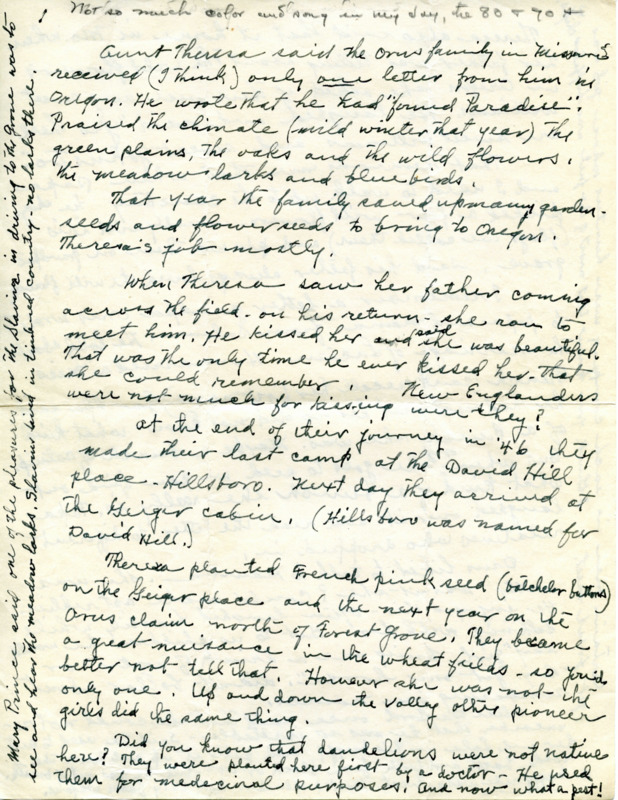 ! Not so much color and song in my day, the 80 & 90 +
Aunt Theresa said the Orus family in Missouri
received (I think) only one letter from him in
Oregon. He wrote that he had "found Paradise".
Praised the climate (mild winter that year) the
green plains, the oaks and the wild flowers,
the meadow larks and blue birds.
That year the family saved up many garden-
seeds and flower seeds to bring to Oregon.
Theresa's job mostly.
When Theresa saw her father coming
across the field - on his return - she ran to
meet him. He kissed her and said she was beautiful.
That was the only time he ever kissed her that
she could remember. New Englanders
were not much for kissing were they?
At the end of their journey in '46 they
made their last camp at the David Hill
place - Hillsboro. Next day they arrived at
the Geiger cabin. (Hillsboro was named for
David Hill.)
Theresa planted French pink seed (batchelor buttons)
on the Geiger place and the next year on the
Orus claim north of Forest Grove. They became
a great nuisance in the wheat fields - so
better not tell that. However she was not the
only one. Up and down the valley other pioneer
girls did the same thing.
Did you know that dandelions were not native
here? They were planted here first by a doctor - He used
them for medicinal purposes. And now what a pest!
Mary Prince said one of the pleasures for the Slavins in driving to the Grove was to
see and hear the meadow larks. Slavins lived in timbered country - no larks there.